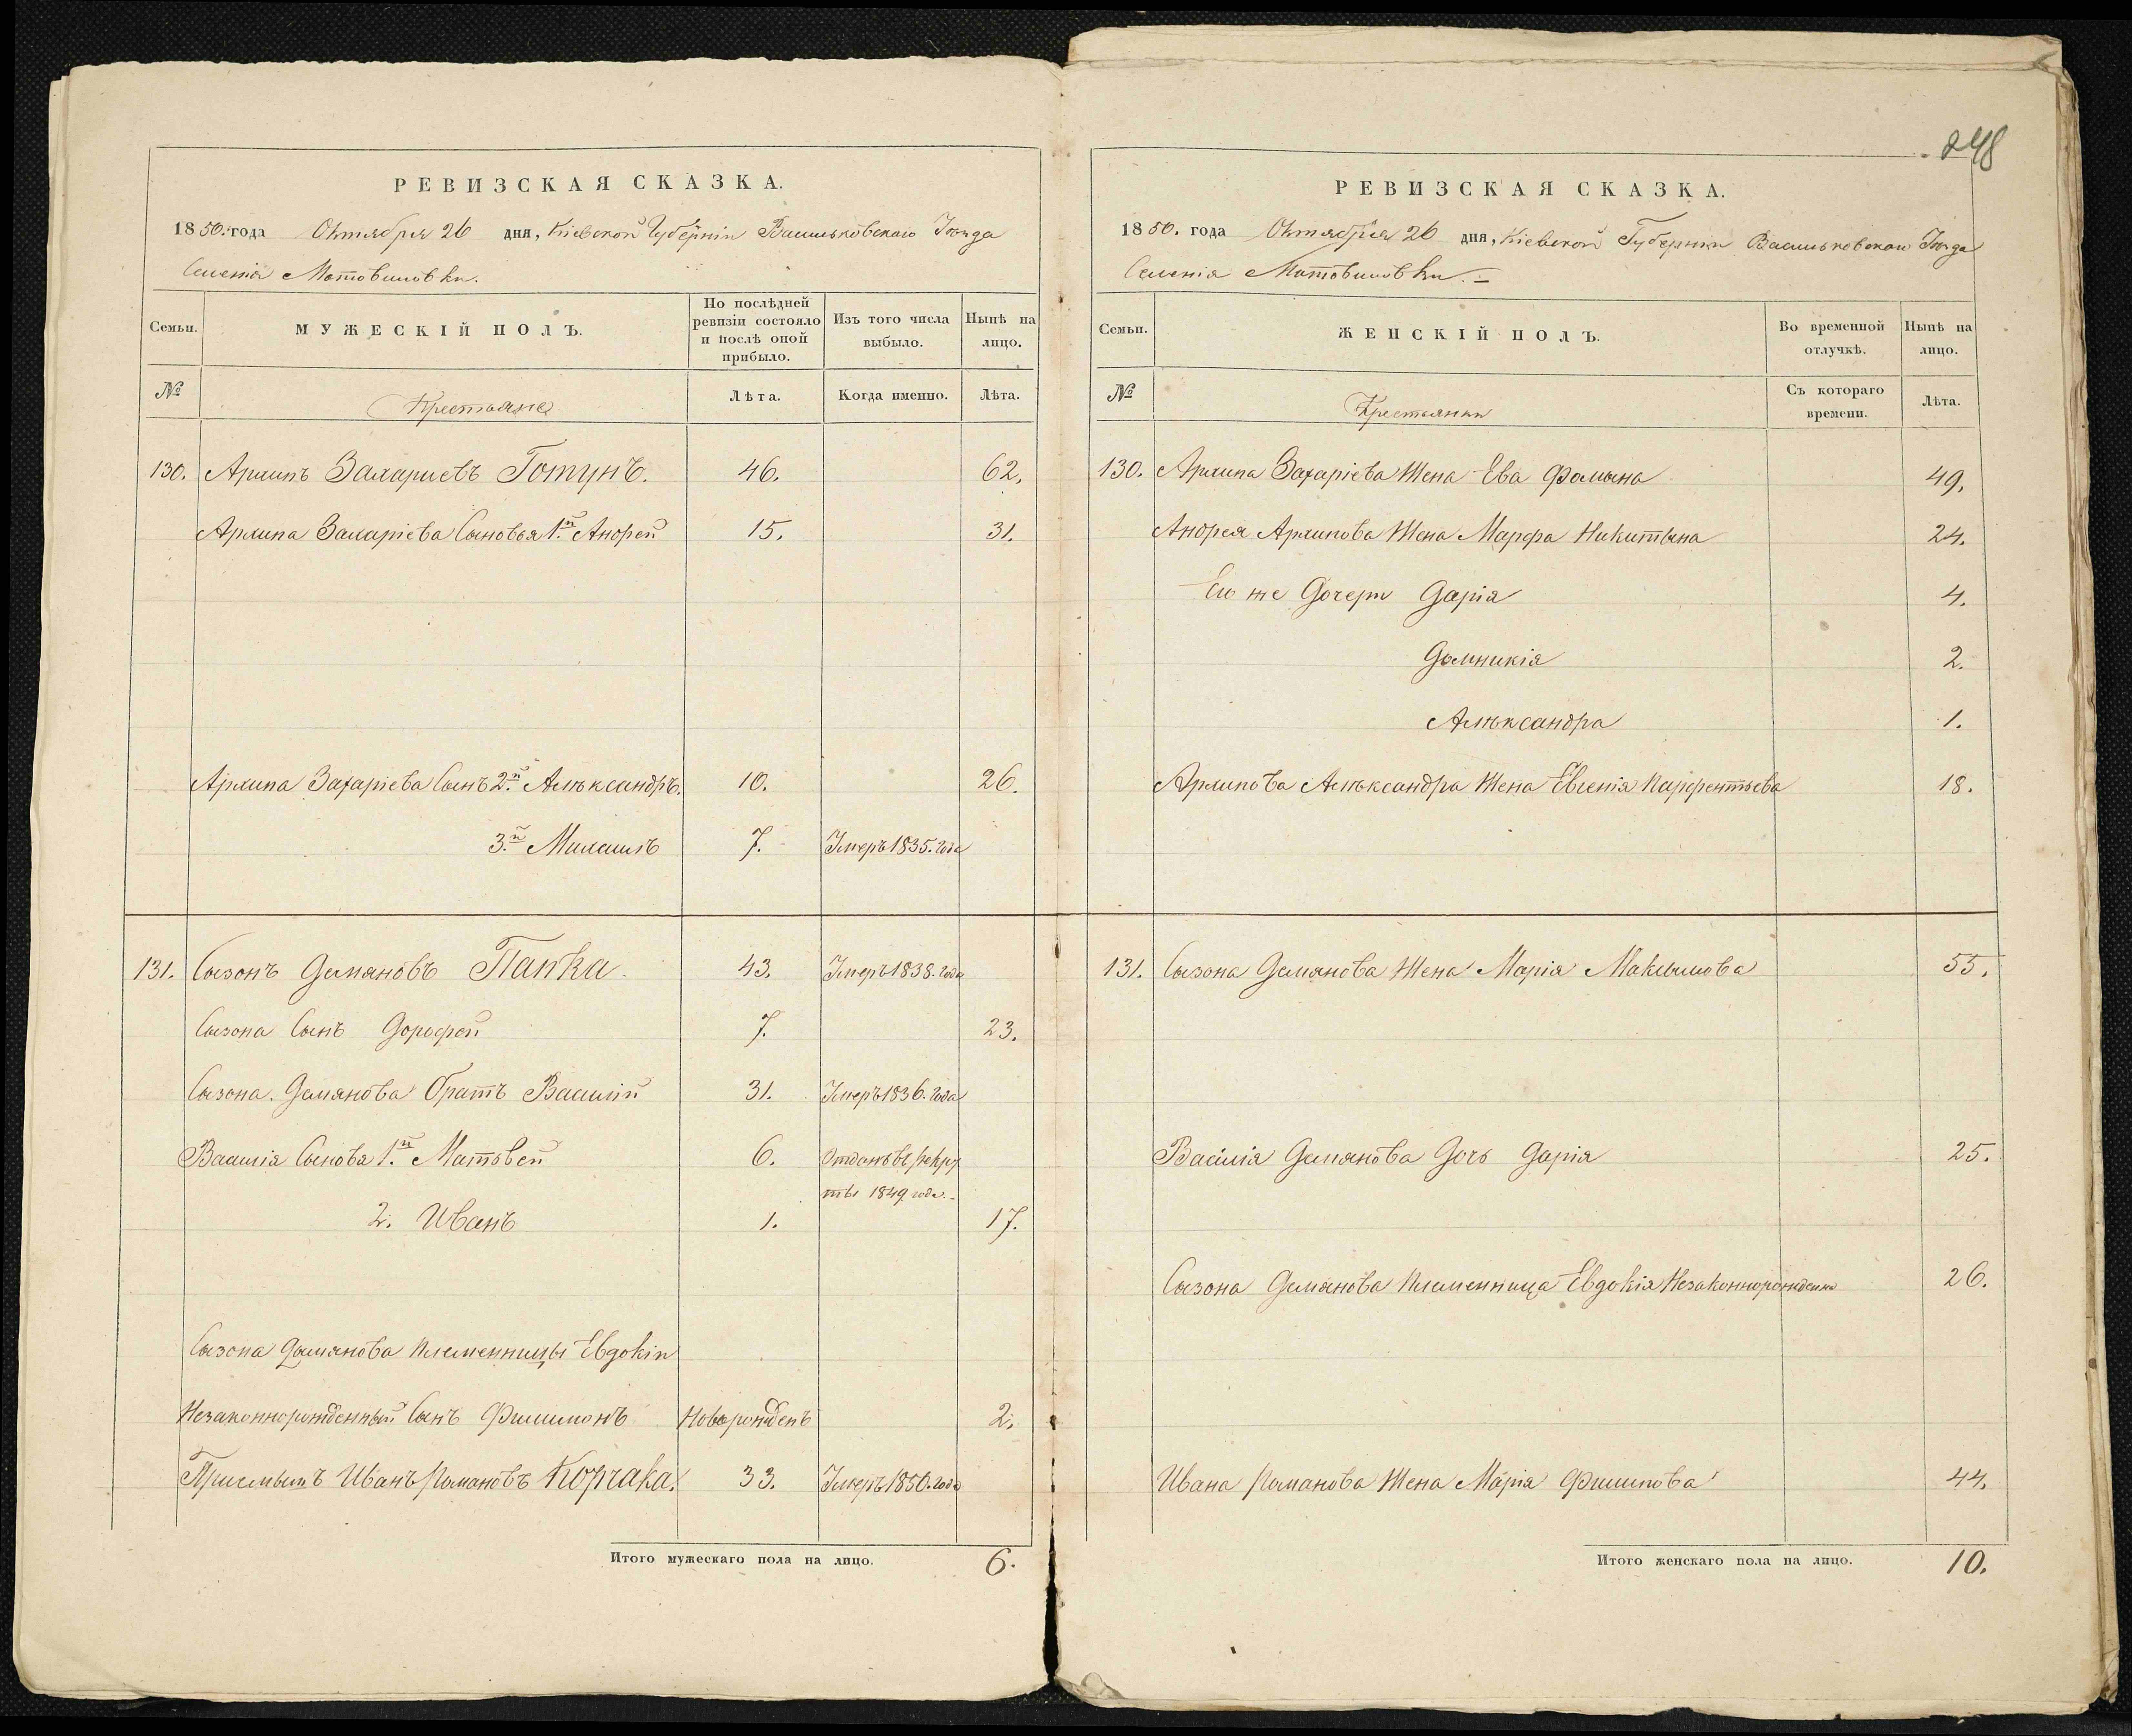 248
РЕВИЗСКАЯ СКАЗКА.
1850. года Октября 26 дня, Кіевской Губерніи Васильковскаго Уѣзда
Селенія Мотовиловки.
Семьи. МУЖЕСКІЙ ПОЛЪ. По послѣдней ревизіи состояло и послѣ оной прибыло. Изъ того числа выбыло. Нынѣ на лицо.
№ Крестьяне Лѣта. Когда именно. Лѣта.
130. Архипъ Захариевъ Готунъ. 46. 62.
Архипа Захаріева Сыновья 1.й Андрей 15. 31.
Архипа Захаріева Сынъ 2.й Алѣксандръ. 10. 26.
3.й Михаилъ 7. Умеръ 1835. года
131. Сызонъ Демяновъ Папка 43. Умеръ 1838. года
Сызона Сынъ Дорофей 7. 23.
Сызона Демянова Братъ Василій 31. Умеръ 1836. года
Василія Сынова 1.й Матвей 6. Отданъ въ рекру
ты 1849 года.
2. Иванъ 1. 17.
Сызона Демянова племенницы Евдокіи
Незаконнорожденный Сынъ Филимонъ Новорожденъ 2.
Приемышъ Иванъ Романовъ Корчака. 33. Умеръ 1850. года
Итого мужескаго пола на лицо. 6.
РЕВИЗСКАЯ СКАЗКА.
1850. года Октября 26 дня, Кіевской Губерніи Васильковскаго Уѣзда
Селенія Мотовиловки.
Семьи. ЖЕНСКІЙ ПОЛЪ. Во временной отлучкѣ. Нынѣ на лицо.
№ Крестьянки Съ котораго времени. Лѣта.
130. Архипа Захаріева Жена Ева Фомына 49.
Андрея Архипова Жена Марфа Никитына 24.
Его же Дочери Дарія 4.
Домникія 2.
Алѣксандра 1.
Архипова Алѣксандра Жена Евгенія Парфентьева 18.
131. Сызона Демянова Жена Марія Максымова 55.
Василія Демянова Дочь Дарія 25.
Сызона Демянова племенница Евдокія Незаконнорожденна 26.
Ивана Романова Жена Марія Филипова 44.
Итого женскаго пола на лицо. 10.